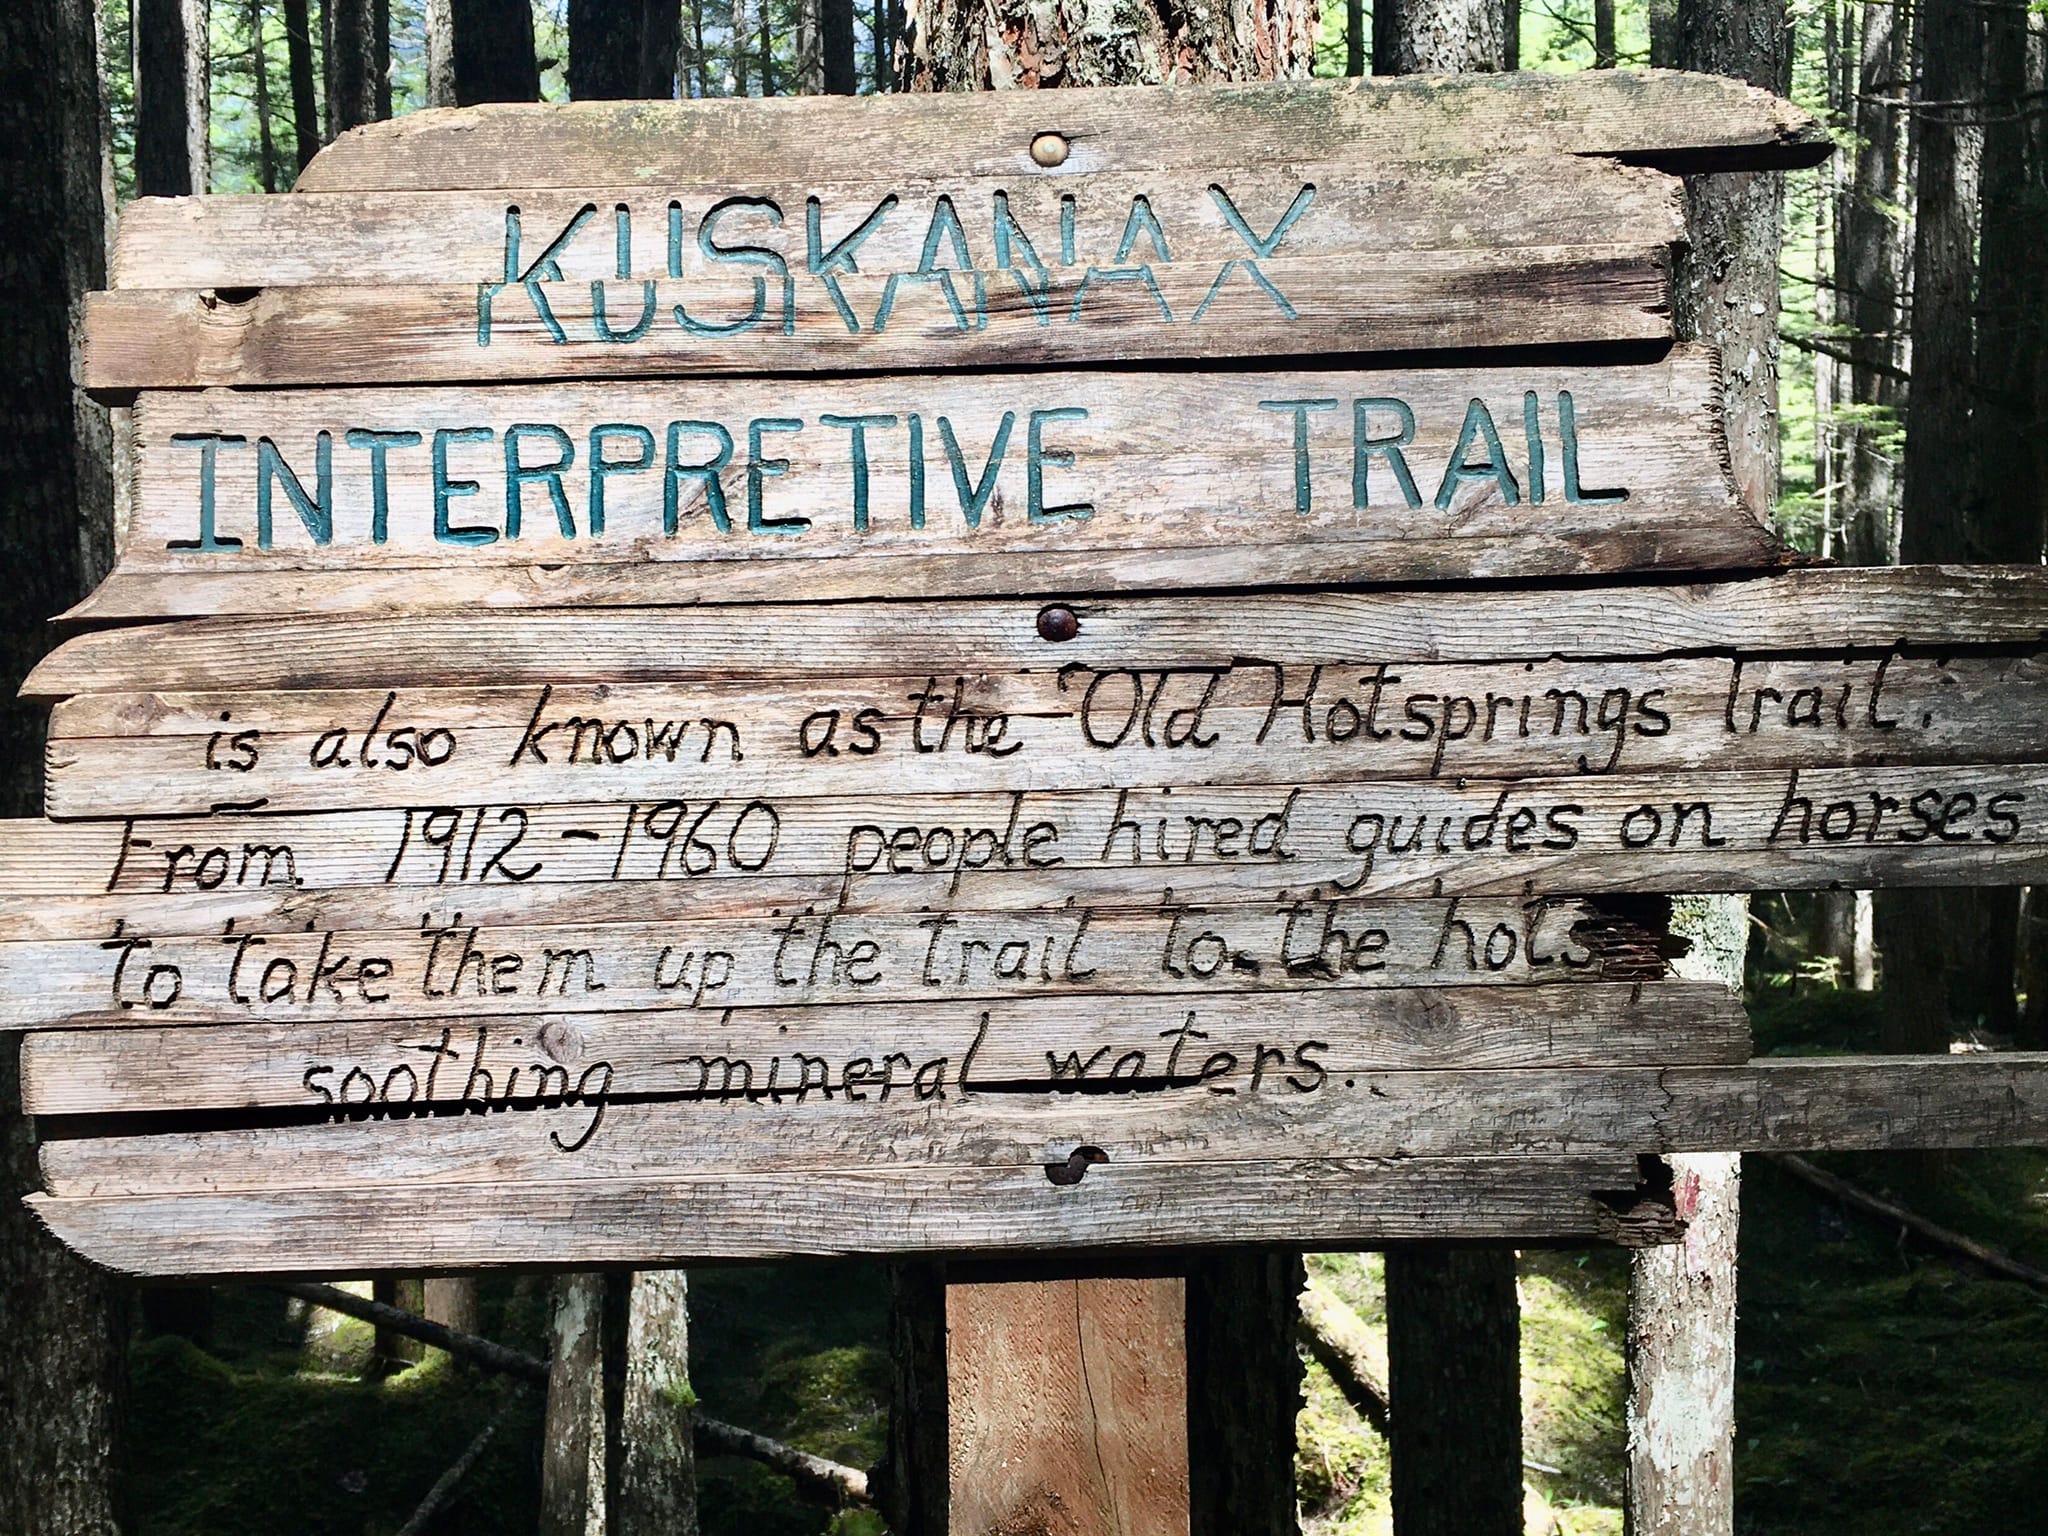 KUSKANAX
INTERPRETIVE TRAIL
is also known as the "Old Hotsprings Trail".
From 1912-1960 people hired guides on horses
to take them up the trail to the hots
soothing mineral waters.